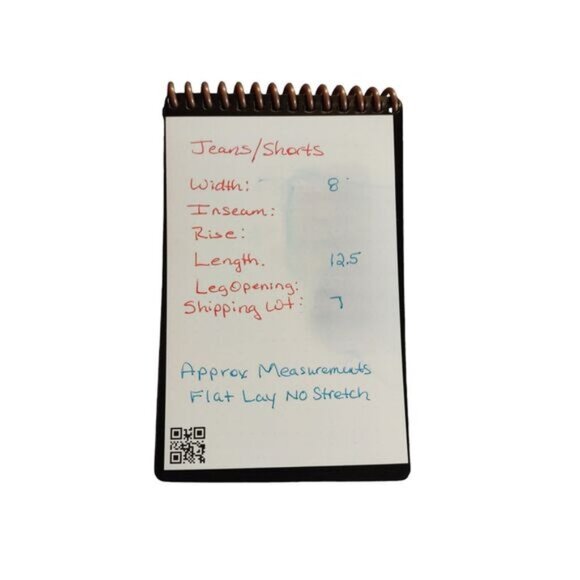 Jeans/Shorts
Width: 8
Inseam:
Rise:
Length. 12.5
Leg Opening:
Shipping Wt: 7
Approx Measurements
Flat Lay No Stretch